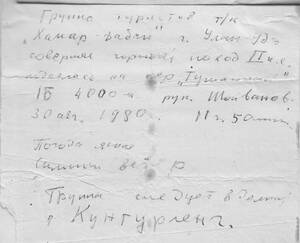 Группа туристов т/к
„Хамар Дабан" г. Улан-Удэ
совершая горный поход II к.с.
поднялась на пер. „Туманный"
1Б 4000 м рук. Шойванов.
30 авг. 1980. 11 ч. 50 мин.
Погода ясно
сильный ветер
Группа следует в долину
р Кунгурленг.